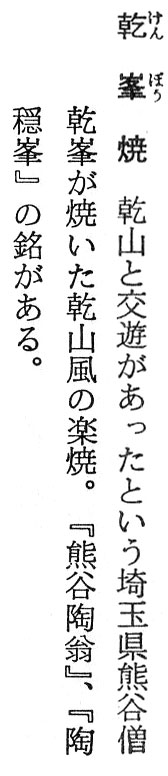 乾峯焼　乾山と交遊があったという埼玉県熊谷僧
乾峯が焼いた乾山風の楽焼。『熊谷陶翁』、『陶
穏峯』の銘がある。